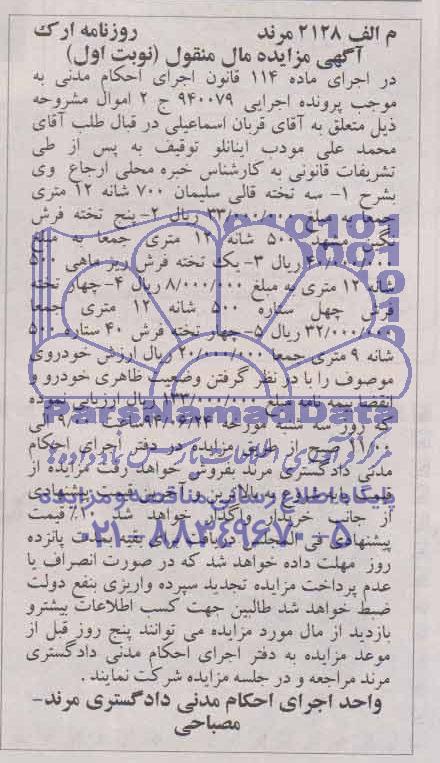 م الف ۲۱۲۸ مرند روزنامه ارک
آگهی مزایده مال منقول (نوبت اول)
در اجرای ماده ۱۱۴ قانون اجرای احکام مدنی به
موجب پرونده اجرایی ۹۴۰۰۷۹ ج ۲ اموال مشروحه
ذیل متعلق به آقای قربان اسماعیلی در قبال طلب آقای
محمد علی مودب اینانلو توقیف به پس از طی
تشریفات قانونی به کارشناس خبره محلی ارجاع وی
بشرح ۱- سه تخته قالی سلیمان ۷۰۰ شانه ۱۲ متری
جمعا به مبلغ ۳۳/۰۰۰/۰۰۰ ریال ۲- پنج تخته فرش
نگین مشهد ۵۰۰ شانه ۱۲ متری جمعا به مبلغ
۴۰/۰۰۰/۰۰۰ ریال ۳- یک تخته فرش ریز ماهی ۵۰۰
شانه ۱۲ متری به مبلغ ۸/۰۰۰/۰۰۰ ریال ۴- چهار تخته
فرش چهل ستاره ۵۰۰ شانه ۱۲ متری جمعا
۳۲/۰۰۰/۰۰۰ ریال ۵- چهار تخته فرش ۴۰ ستاره ۵۰۰
شانه ۹ متری جمعا ۲۰/۰۰۰/۰۰۰ ریال ارزش خودروی
موصوف را با در نظر گرفتن وضعیت ظاهری خودرو و
انقضا بیمه نامه مبلغ ۱۳۳/۰۰۰/۰۰۰ ریال ارزیابی نموده
که روز سه شنبه مورخه ۹۴/۰۶/۲۴ ساعت ۹/۰۰ الی
۱۱/۰۰ صبح از طریق مزایده در دفتر اجرای احکام
مدنی دادگستری مرند بفروش خواهد رفت مزایده از
قیمت پایه شروع به بالاترین قیمت پیشنهادی
از جانب خریدار واگذار خواهد شد ۱۰٪ قیمت
پیشنهادی فی المجلس دریافت برای بقیه بمدت پانزده
روز مهلت داده خواهد شد که در صورت انصراف یا
عدم پرداخت مزایده تجدید سپرده واریزی بنفع دولت
ضبط خواهد شد طالبین جهت کسب اطلاعات بیشترو
بازدید از مال مورد مزایده می توانند پنج روز قبل از
موعد مزایده به دفتر اجرای احکام مدنی دادگستری
مرند مراجعه و در جلسه مزایده شرکت نمایند .
واحد اجرای احکام مدنی دادگستری مرند-
مصباحی
ParsNamadData
پایگاه اطلاع رسانی مناقصه و مزایده
۰۲۱-۸۸۳۴۹۶۷۰-۵